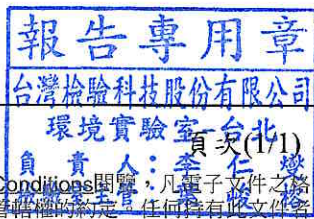 報告專用章
台灣檢驗科技股份有限公司
環境實驗室-台北
頁次(1/1)
負責人：李仁燮
Conditions閱覽，凡電子文件之
任何持有此文件者